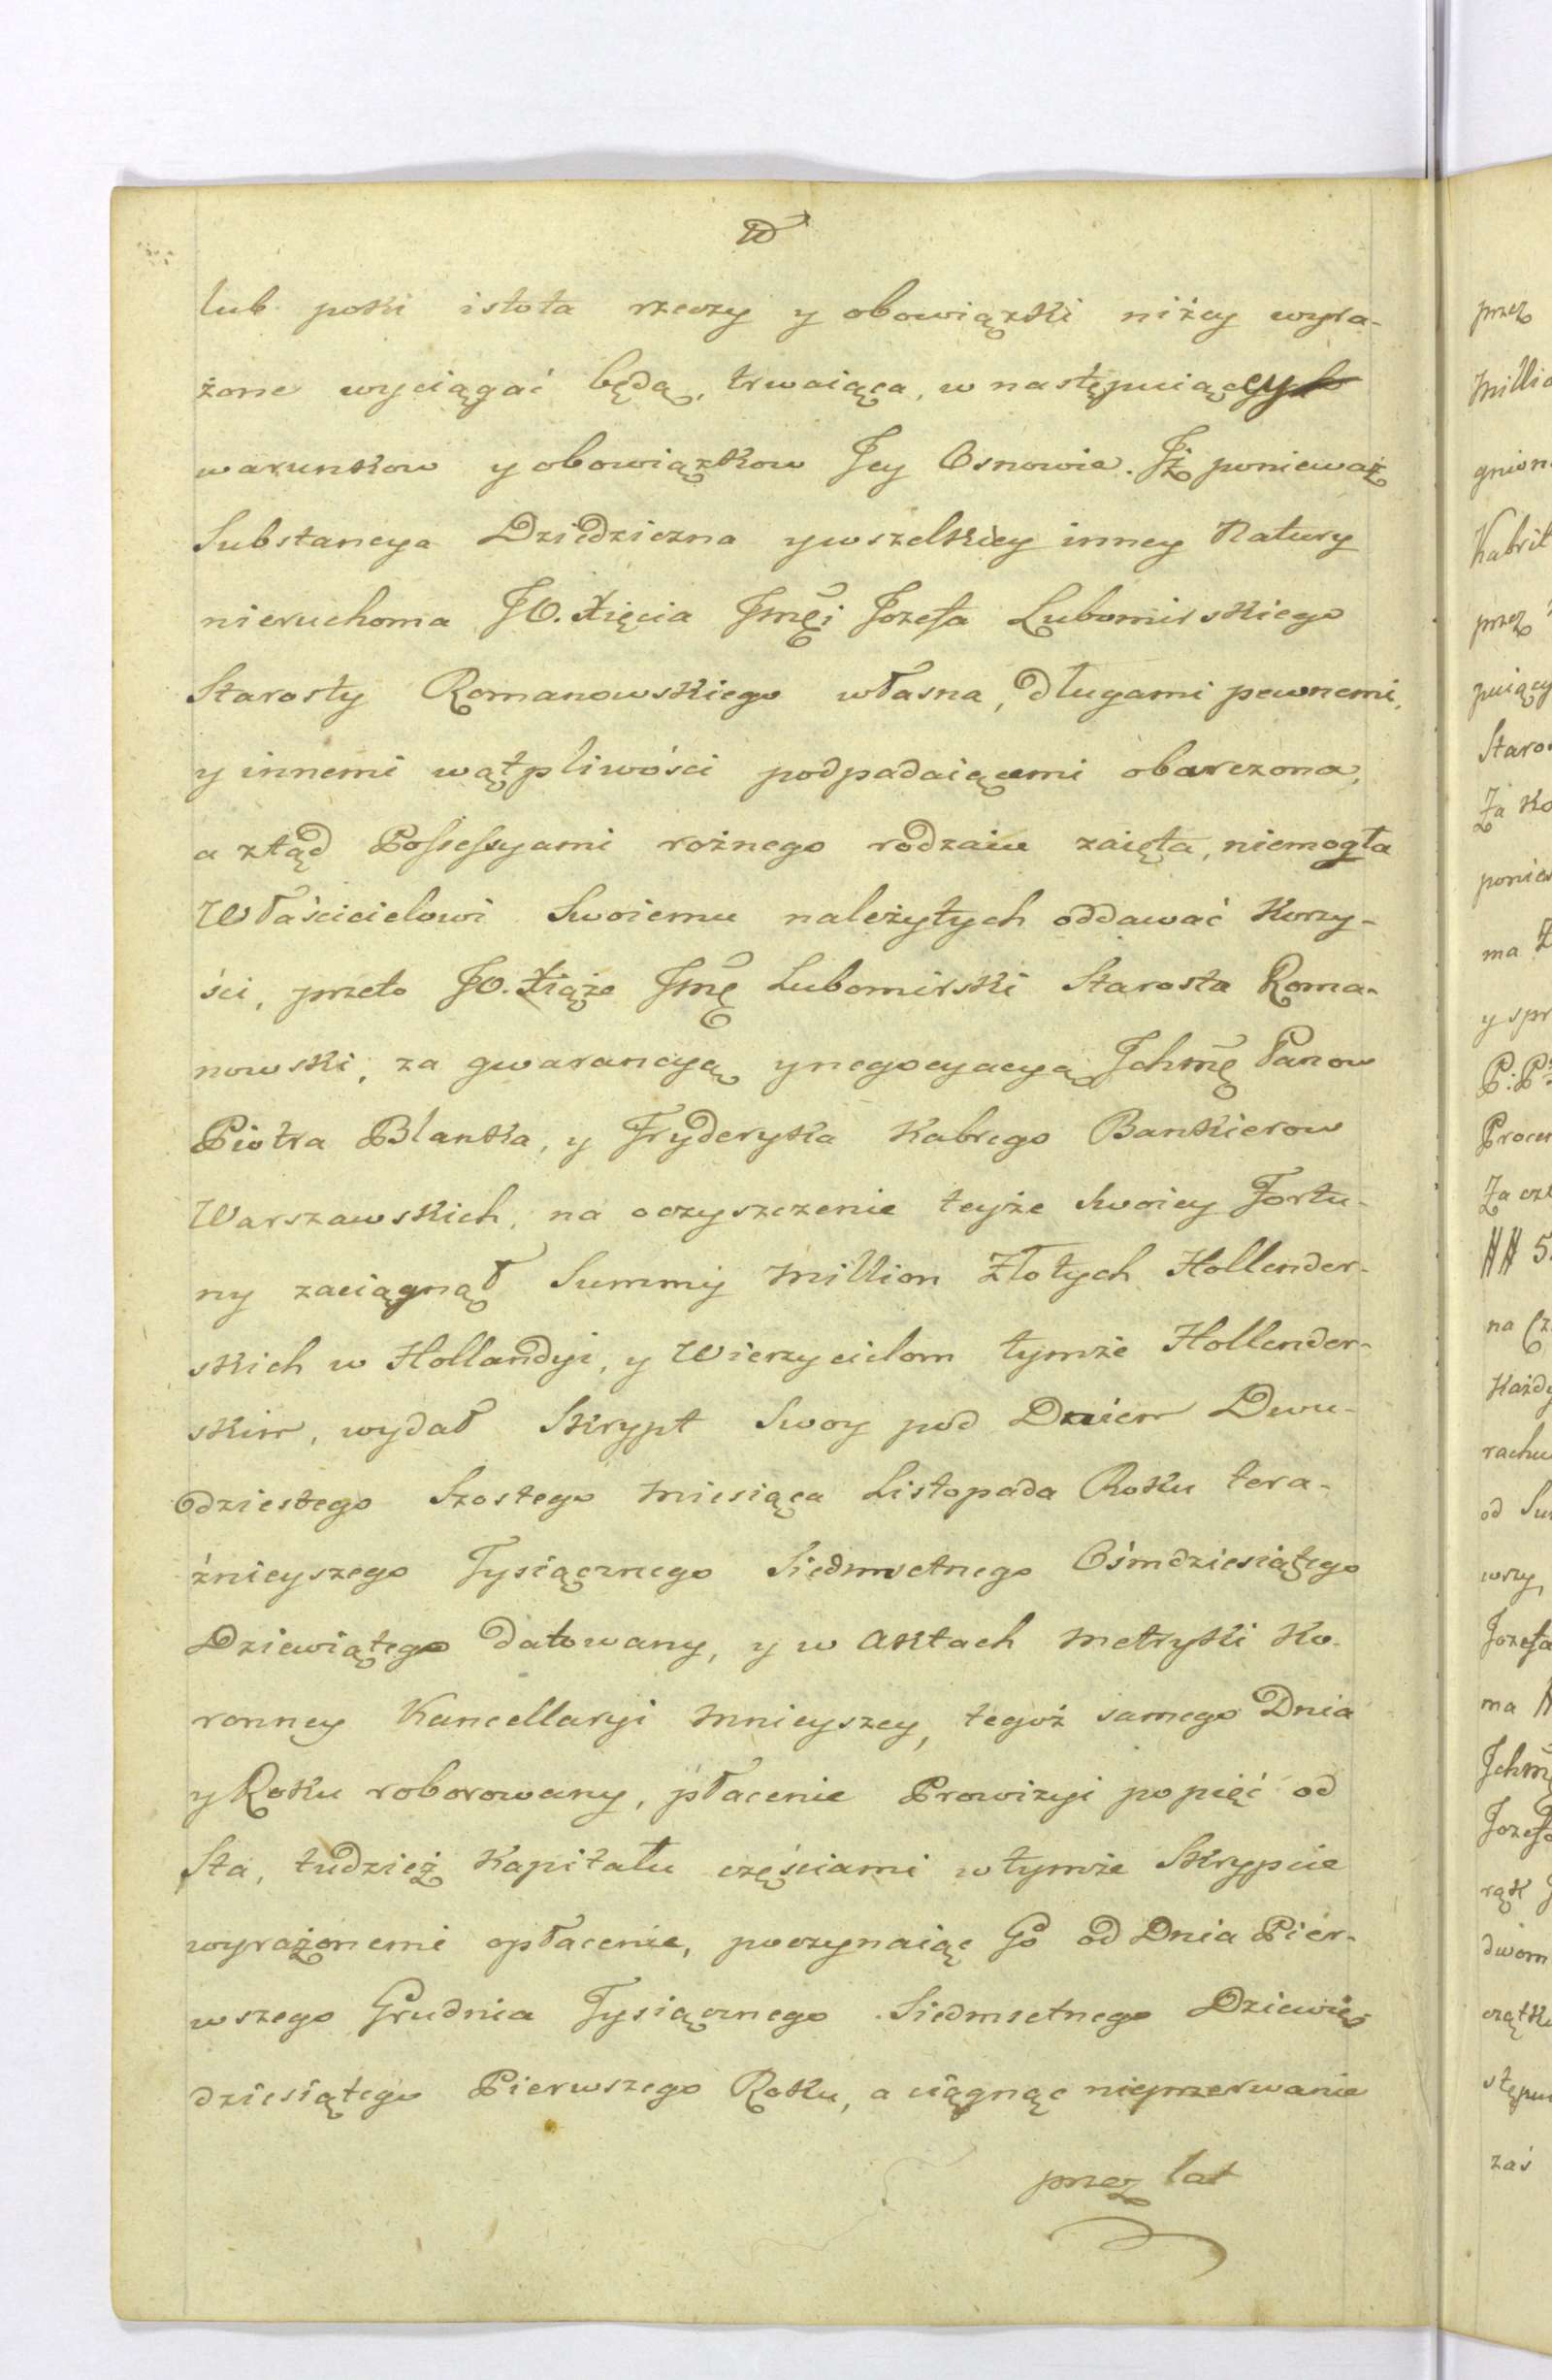 lub poki istota rzeczy y obowiązki niżey wyra-
żone wyciągać będą, trwaiąca, w następuiącey
warunkow y obowiązkow Jey Osnowie. Iż ponieważ
Substancya Dziedziczna y wszelkiey inney Natury
nieruchoma JO. Xięcia Jmći Jozefa Lubomirskiego
Starosty Romanowskiego własna, długami pewnemi,
y innemi wątpliwości podpadaiącemi obarczona,
a ztąd Possessyami rożnego rodzaiu zaięta, niemogła
Właścicielowi Swoiemu należytych oddawać Korzy-
ści, przeto JO. Xiąże Jmć Lubomirski Starosta Roma-
nowski, za gwarancyą y negocyacyą Jchmć Panow
Piotra Blanka, y Fryderyka Kabrego Bankierow
Warszawskich, na oczyszczenie teyże Swoiey Fortu-
ny zaciągnął Summy Million Złotych Hollender-
skich w Hollandyi, y Wierzycielom tymże Hollender-
skim, wydał Skrypt Swoy pod Dniem Dwu-
dziestego Szostego Miesiąca Listopada Roku tera-
źnieyszego Tysiącznego Siedmsetnego Ośmdziesiątego
Dziewiątego datowany, y w Aktach Metryki Ko-
ronney Kancellaryi Mnieyszey, tegoż samego Dnia
y Roku roborowany, płacenie Prowizyi po pięć od
Sta, tudzież Kapitału częściami w tymże Skrypcie
wyrażonemi opłacenie, poczynaiąc Go od Dnia Pier-
wszego Grudnia Tysiącznego Siedmsetnego Dziewięć
dziesiątego Pierwszego Roku, a ciągnąc nieprzerwanie
przez lat
przez
Millio
gnion
Kabrit
przez
puiący
Staro
Za Ko
poniew
ma
y spr
P: P
Proce
Za
na
Każdy
rachu
od Su
wszy,
Jozefa
ma
Jchm
Jozefa
rąk
dwom
czątku
stępu
zaś